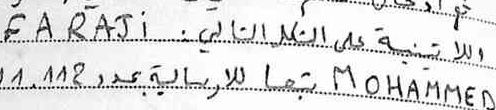 واللاتنية على الشكل التالي: FARAJi
MOHAMMED تبعا للإرسالية عدد 11.112